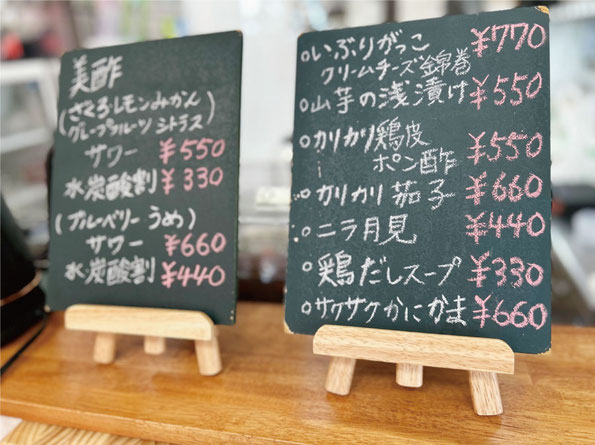 美酢
(ざくろ レモン みかん
グレープフルーツ シトラス)
サワー ¥550
水炭酸割 ¥330
(ブルーベリー うめ)
サワー ¥660
水炭酸割 ¥440
○いぶりがっこ
クリームチーズ錦巻 ¥770
○山芋の浅漬け ¥550
○カリカリ鶏皮
ポン酢 ¥550
○カリカリ茄子 ¥660
○ニラ月見 ¥440
○鶏だしスープ ¥330
○サクサクかにかま ¥660